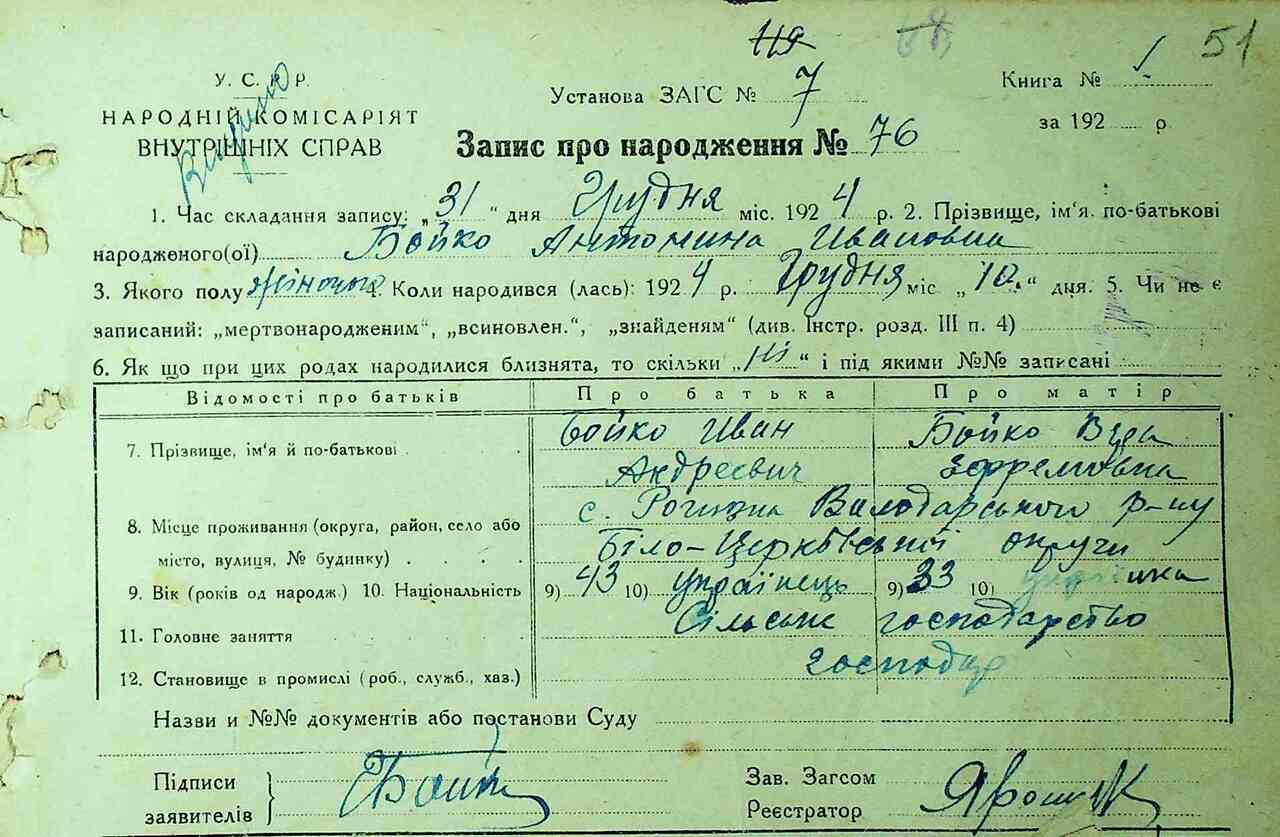 119
51
У. С. Р. Р.
Видано
НАРОДНІЙ КОМІСАРІЯТ
ВНУТРІШНІХ СПРАВ
Установа ЗАГС № 7
Книга № 1
за 192 р.
Запис про народження № 76
1. Час складання запису: „31“ дня Грудня міс. 1924 р. 2. Прізвище, ім'я. по-батькові
народженого(ої) Бойко Антонина Ивановна
3. Якого полу жіночого 4. Коли народився (лась): 1924 р. Грудня міс „10.“ дня. 5. Чи не є
записаний: „мертвонародженим“, „всиновлен.“, „знайденям“ (див. Інстр. розд. III п. 4)
6. Як що при цих родах народилися близнята, то скільки „ні“ і під якими №№ записані
Відомості про батьків Про батька Про матір
7. Прізвище, ім'я й по-батькові Бойко Иван Бойко Вера
Андреевич Ефремовна
с. Володарського р-ну
8. Місце проживання (округа, район, село або
місто, вулиця, № будинку) Біло-Церківської округи
9. Вік (років од народж.) 10. Національність 9) 43 10) українець 9) 33 10) українка
11. Головне заняття Сільське господарство
12. Становище в промислі (роб., служб., хаз.) господар
Назви и №№ документів або постанови Суду
Підписи
заявителів
Зав. Загсом
Реєстратор